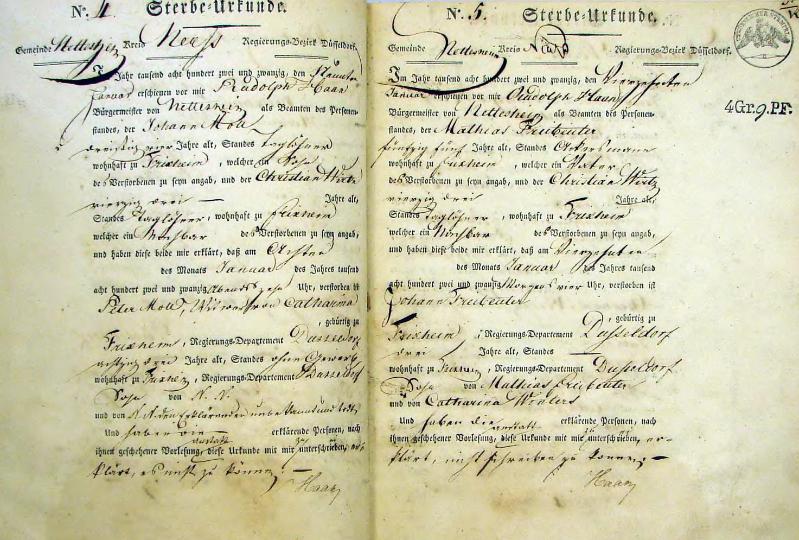 Nº. 4 Sterbe-Urkunde.
Gemeinde Nettesheim Kreis Neuss Regierungs-Bezirk Düsseldorf.
Im Jahr tausend acht hundert zwei und zwanzig, den Neunten
Januar erschienen vor mir Rudolph Haan
Bürgermeister von Nettesheim als Beamten des Personen-
standes, der Johann Moll
dreissig vier Jahre alt, Standes Taglöhner
wohnhaft zu Frixheim, welcher ein Sohn
des Verstorbenen zu seyn angab, und der Christian Wirtz
vierzig drei — Jahre alt,
Standes Taglöhner, wohnhaft zu Frixheim
welcher ein Nachbar des Verstorbenen zu seyn angab,
und haben diese beide mir erklärt, daß am Achten
des Monats Januar des Jahres tausend
acht hundert zwei und zwanzig Abends zehn Uhr, verstorben ist
Peter Moll, Witwer von Catharina
, gebürtig zu
Frixheim, Regierungs-Departement Dusseldorf
achtzig drei Jahre alt, Standes ohne Gewerb
wohnhaft zu Frixheim, Regierungs-Departement Dusseldorf
Sohn von N. N.
und von N. N. den Erklärenden unbekannt
Und haben die — erklärende Personen, nach
ihnen geschehener Vorlesung, diese Urkunde mit mir zu unterschreiben, er-
klärt, es nicht zu können. —
Haan
Nº. 5. Sterbe-Urkunde.
Gemeinde Nettesheim Kreis Neuß Regierungs-Bezirk Düsseldorf.
Im Jahr tausend acht hundert zwei und zwanzig, den Vierzehnten
Januar erschienen vor mir Rudolph Haan
Bürgermeister von Nettesheim als Beamten des Personen-
standes, der Mathias Freibeuter
fünfzig fünf Jahre alt, Standes Ackersmann
wohnhaft zu Frixheim, welcher ein Vater
des Verstorbenen zu seyn angab, und der Christian Wirtz
vierzig drei Jahre alt,
Standes Taglöhner, wohnhaft zu Frixheim
welcher ein Nachbar des Verstorbenen zu seyn angab,
und haben diese beide mir erklärt, daß am Vierzehnten
des Monats Januar des Jahres tausend
acht hundert zwei und zwanzig Morgens vier Uhr, verstorben ist
Johann Freibeuter
, gebürtig zu
Frixheim, Regierungs-Departement Dusseldorf
drei Jahre alt, Standes
wohnhaft zu Frixheim, Regierungs-Departement Dusseldorf
Sohn von Mathias Freibeuter
und von Catharina Winters
Und haben die anstatt erklärende Personen, nach
ihnen geschehener Vorlesung, diese Urkunde mit mir zu unterschreiben, er-
klärt, nicht schreiben zu können. —
Haan
4Gr.9.PF.